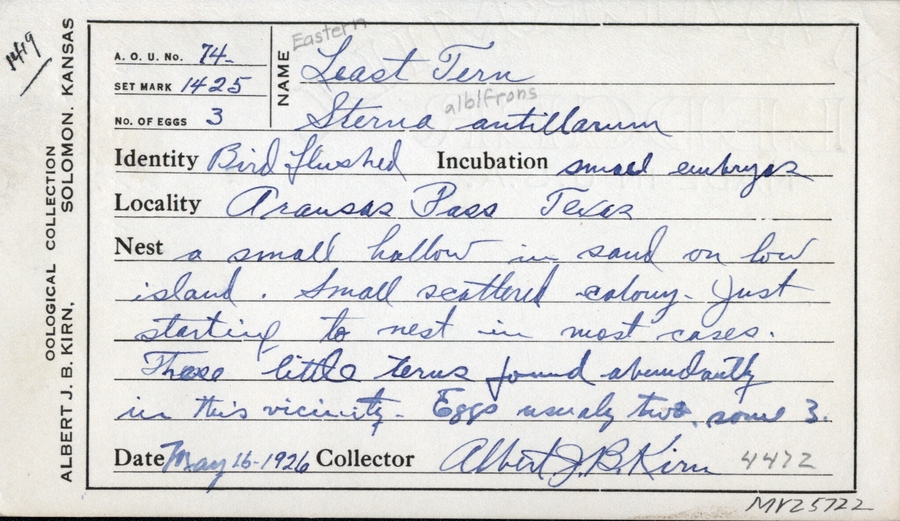 1419
OOLOGICAL COLLECTION
ALBERT J. B. KIRN, SOLOMON, KANSAS
A. O. U. No. 74-
SET MARK 1425
No. OF EGGS 3
NAME
Eastern
Least Tern
albifrons
Sterna antillarum
Identity Bird flushed Incubation small embryos
Locality Aransas Pass Texas
Nest a small hollow in sand on low
island. Small scattered colony. Just
starting to nest in most cases.
These little terns found abundantly
in this vicinity. Eggs usualy two, some 3.
Date May 16-1926 Collector Albert J. B. Kirn 4472
MVZ5722